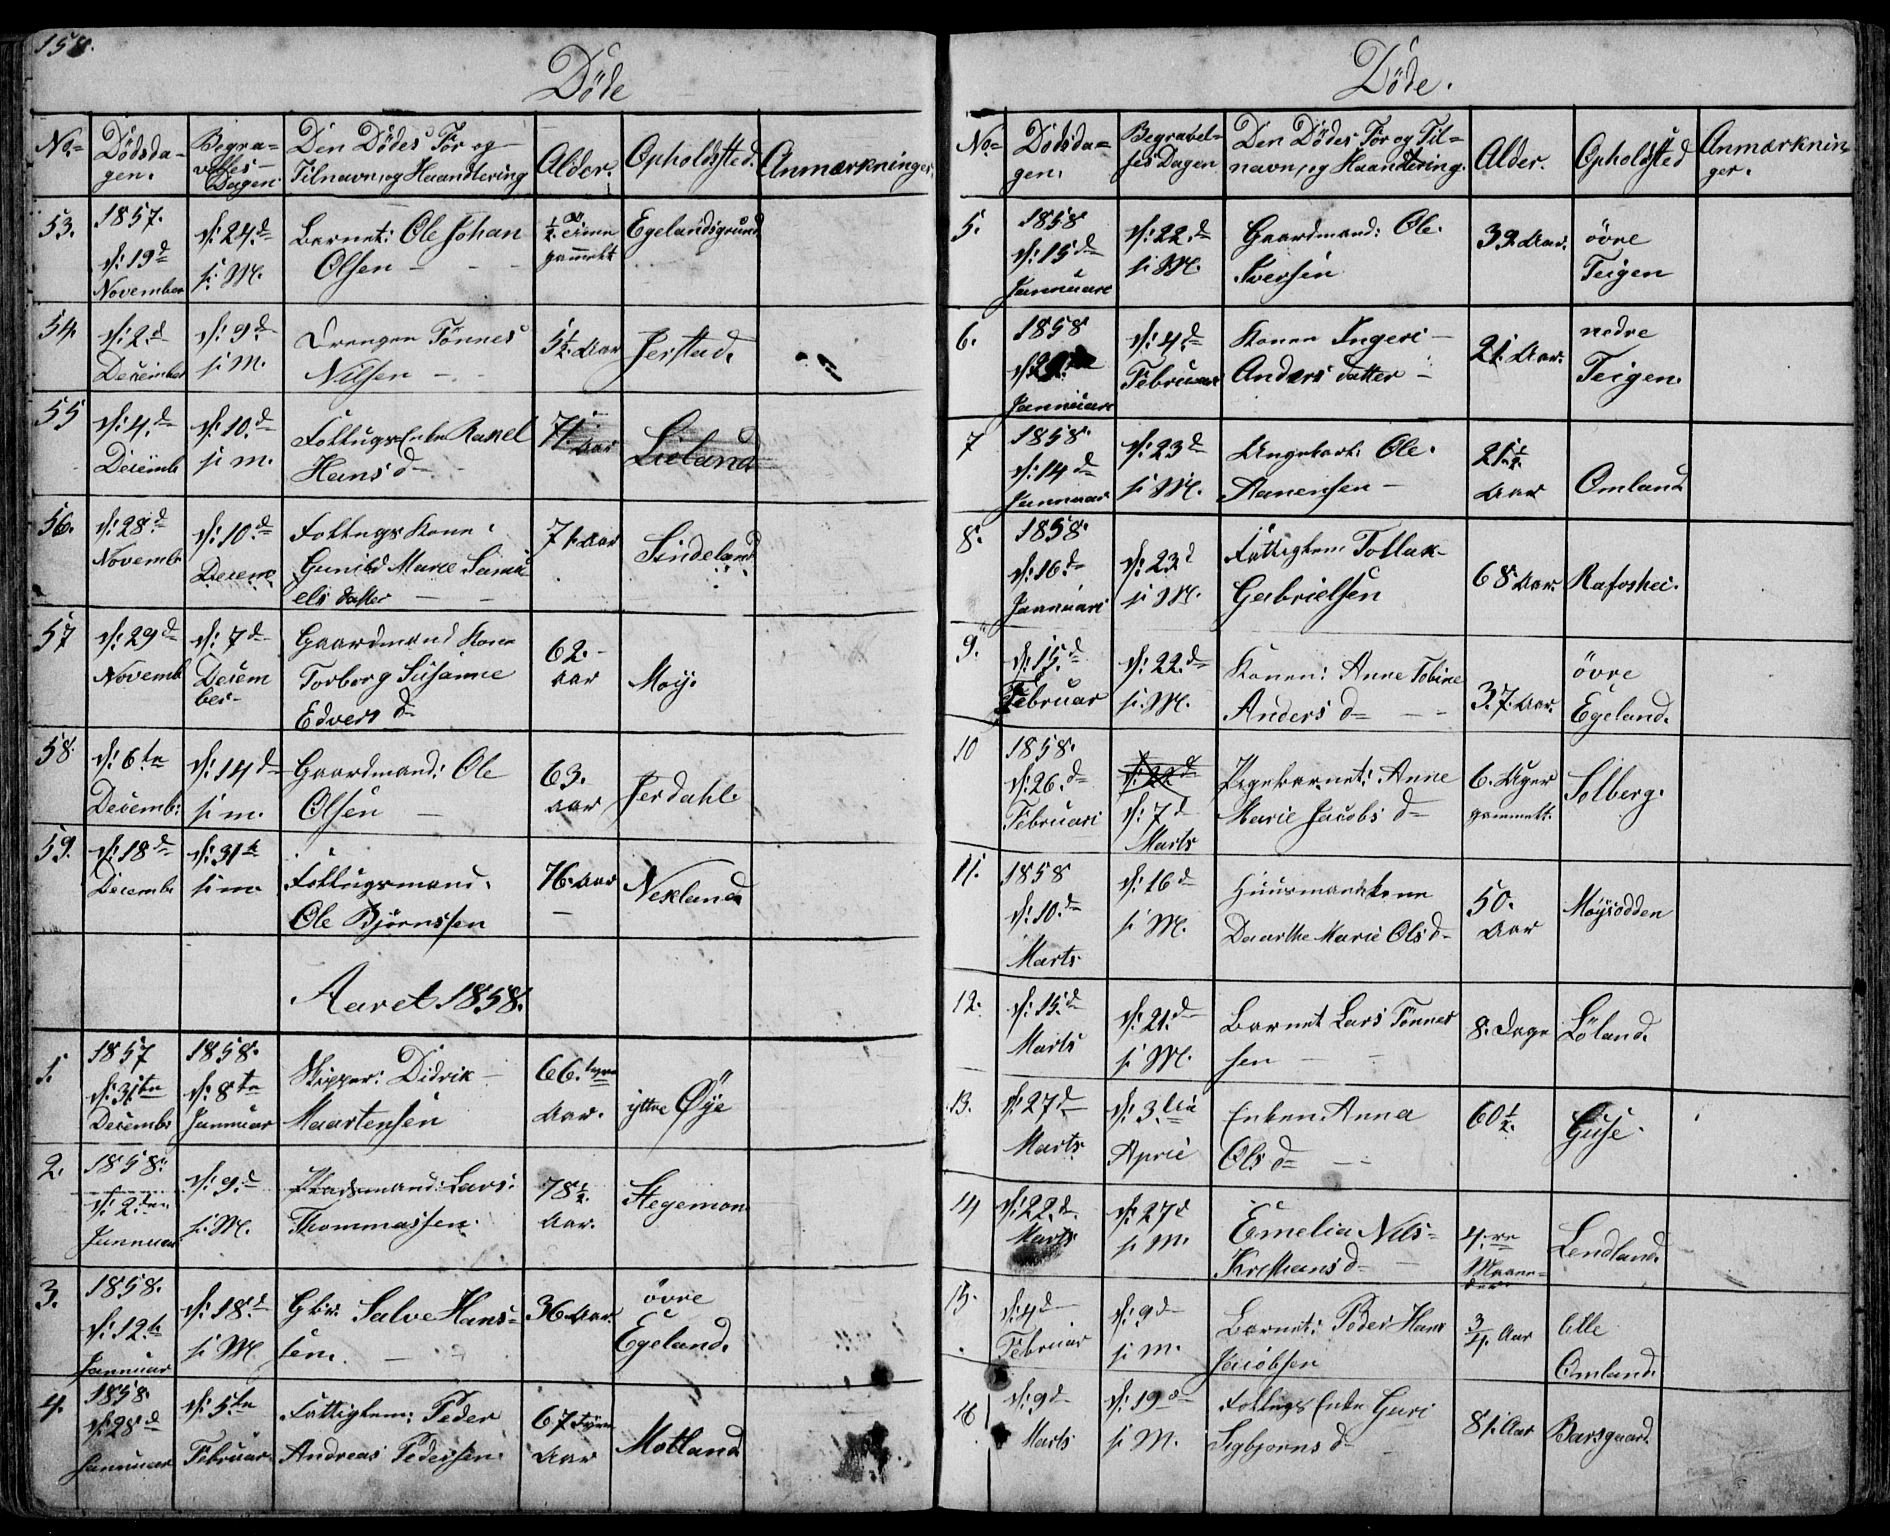 158.
Døde
No=
Dødsda=
gen.
Begra=
velses=
Dagen
Den Dødes For og
Tilnavn, og Haandtering
Alder.
Opholdssted.
Anmærkninger
53.
1857.
d: 19d
November
d: 24d
s: M.
Barnet: Ole Johan
Olsen
gammelt
Egelandsgrund
54
d: 2d
December
d: 9d
s: M.
Drengen Tønnes
Nilsen
5½ Aar
Jerstad.
55
d: 4d
Decemb
d: 10d
s: m.
Follugs Enke Rakel
Hans d=
71 Aar
Lieland
56.
d: 28d
Novemb
d: 10d
Decem
Follugs Kone
Gunild Marie Samu
els datter
71 Aar
Sindeland
57
d: 29d
Novemb
d: 7d
Decem
ber
Gaardmand Kone
Torborg Susanne
Edvers d=
62.
Aar
Moy.
58.
d: 6te
Decemb:
d: 14d
s: m.
Gaardmand: Ole
Olsen
63.
Aar
Jerdahl.
59.
d: 18d
Decemb:
d: 31te
s: m.
Follugsmand.
Ole Bjørnssen
76. Aar
Nekland
Aaret 1858.
1.
1857
d: 31te
Decembr
1858.
d: 8te
Januuar
Skipper: Didrik
Maartensen
66.
Aar.
yttre Øye
2.
1858.
d: 2den
Januuar
d: 9d
s: M.
Pladsmand: Lars:
Thommassen.
78½
Aar.
Stegemon
3.
1858.
d: 12te
Januuar
d: 18d
s: M
Gbr. Salve Hans=
sen.
36 Aar.
övre
Egeland.
4.
1858
d: 28d
Januuar
d: 5te
Februar
Fattiglem: Peder
Andreas Pedersen.
67
Aar
Motland
Døde.
No=
Dødsda=
gen.
Begravel=
ses Dagen
Den Dødes For og Til=
navn, og Haandtering.
Alder.
Opholdssted
Anmærknin
ger.
5.
1858
d: 15d
Januuari
d: 22d
s: M.
Gaardmand: Ole.
Iversen
39. Aar.
övre
Teigen
6.
1858
Januuari
d: 4d
Februar
Konen Ingeri
Anders datter
21. Aar.
nedre
Teigen.
7
1858.
d: 14d
Januuar
d: 23d
s: M.
Ungekarl: Ole.
Aanensen
21½
Aar
Omland
8.
1858.
d: 16d
Januuari
d: 23d
s: M.
Fattiglem Tollak
Gabrielsen
68 Aar.
Rafoshei.
9.
d: 15d
Februar
d: 22d
s: M.
Konen: Anne Tobine
Anders d=
37. Aar.
övre
Egeland.
10
1858.
d: 26d
Februari
d: 22d
d: 7d
Marts
Pigebarnet: Anne
Marie Jacobs d=
6. Uger
gammelt.
Solberg.
11.
1858
d: 10d
Marts
d: 16d
s: M.
Huusmandskone
Daarthe Marie Ols d=
50.
Aar
Moysodden
12.
d: 15d
Marts
d: 21d
s: M.
Barnet Lars Tønnes
sen
8. Dage
Löland.
13.
d: 27d
Marts
d: 3die
April
Enken Anna
Ols d=
60½
Guse.
14
d: 22d.
Marts
d: 27d
s: M.
Emelia Nils=
Kristians d=
4.re
Maane=
der
Lendland.
15.
d: 4d
Februar
d: 9d
s: m.
Barnet: Peder Hans
Jacobsen
3/4. Aar
lille
Omland.
16
d: 9d
Marts
d: 19d
s: M.
Follugs Enke Guri
Sigbjørns d=
81. Aar
Barsgaard.